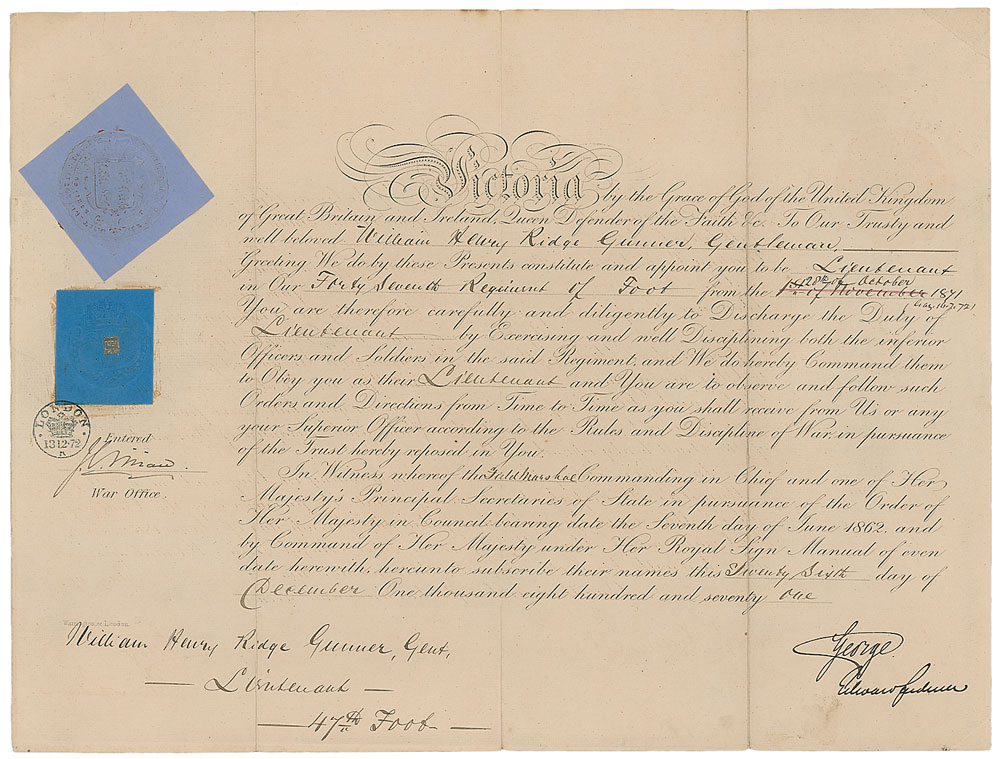 Victoria by the Grace of God of the United Kingdom
of Great Britain and Ireland, Queen Defender of the Faith &c. To Our Trusty and
well beloved William Henry Ridge Gunner, Gentleman,
Greeting We do by these Presents constitute and appoint you to be Lieutenant
28th of October
in Our Forty Seventh Regiment of Foot from the 1st of November 1871
You are therefore carefully and diligently to Discharge the Duty of
Lieutenant by Exercising and well Disciplining both the inferior
Officers and Soldiers in the said Regiment, and We do hereby Command them
to Obey you as their Lieutenant and You are to observe and follow such
Orders and Directions from Time to Time as you shall receive from Us or any
your Superior Officer according to the Rules and Discipline of War, in pursuance
of the Trust hereby reposed in You.
In Witness whereof the Field Marshal Commanding in Chief and one of Her
Majesty's Principal Secretaries of State in pursuance of the Order of
Her Majesty in Council bearing date the Seventh day of June 1862, and
by Command of Her Majesty under Her Royal Sign Manual of even
date herewith, hereunto subscribe their names this Twenty Sixth day of
December One thousand eight hundred and seventy one
LONDON
13.12.72
A
Entered
War Office.
William Henry Ridge Gunner, Gent,
— Lieutenant —
— 47th Foot —
George
Edward